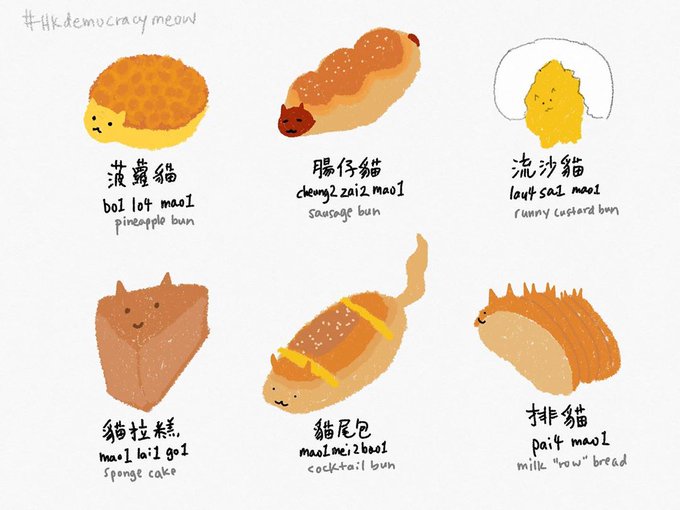 #Hkdemocracymeow
菠蘿貓
bo1 lo4 mao1
pineapple bun
腸仔貓
cheung2 zai2 mao1
sausage bun
流沙貓
lau4 sa1 mao1
runny custard bun
貓拉糕
mao1 lai1 go1
sponge cake
貓尾包
mao1 mei2 bao1
cocktail bun
排貓
pai4 mao1
milk "row" bread